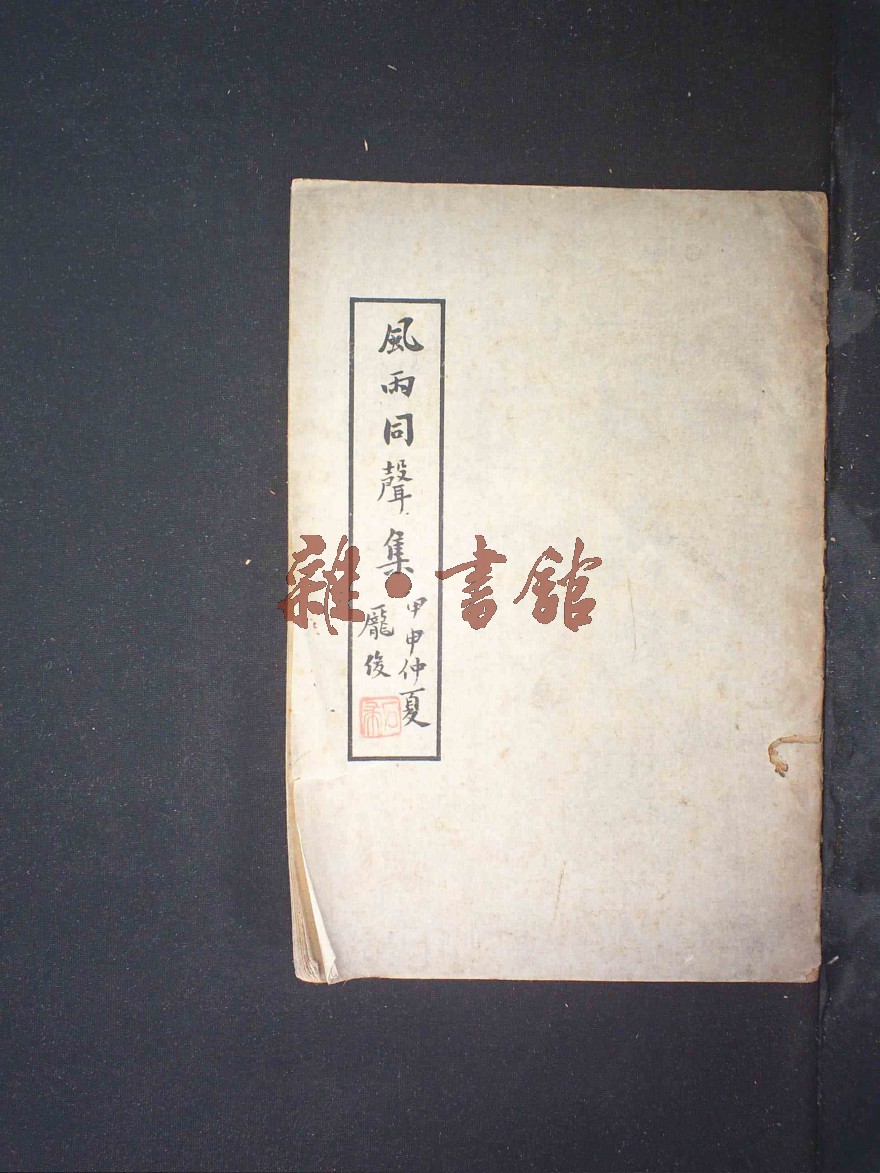 風雨同聲集
甲申仲夏
龐俊
雜·書館